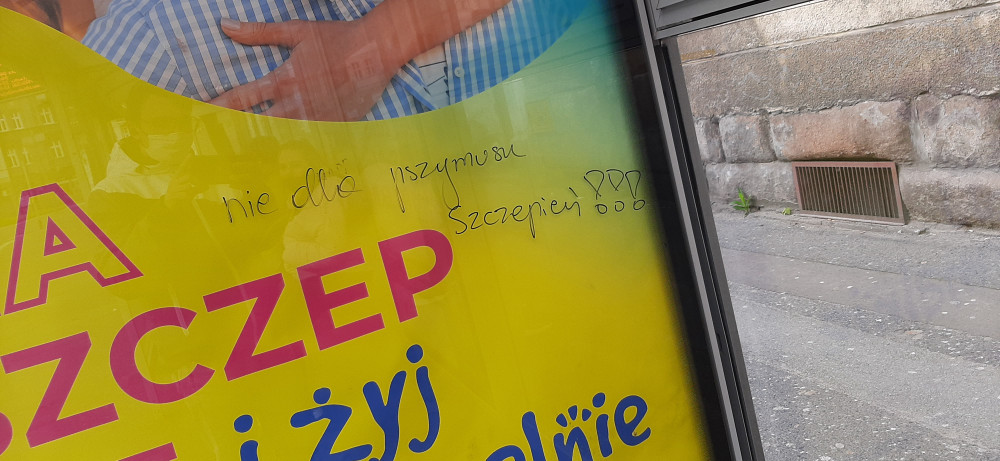 nie dla pszymusu
Szczepień!!!
A
SZCZEP
i żyj